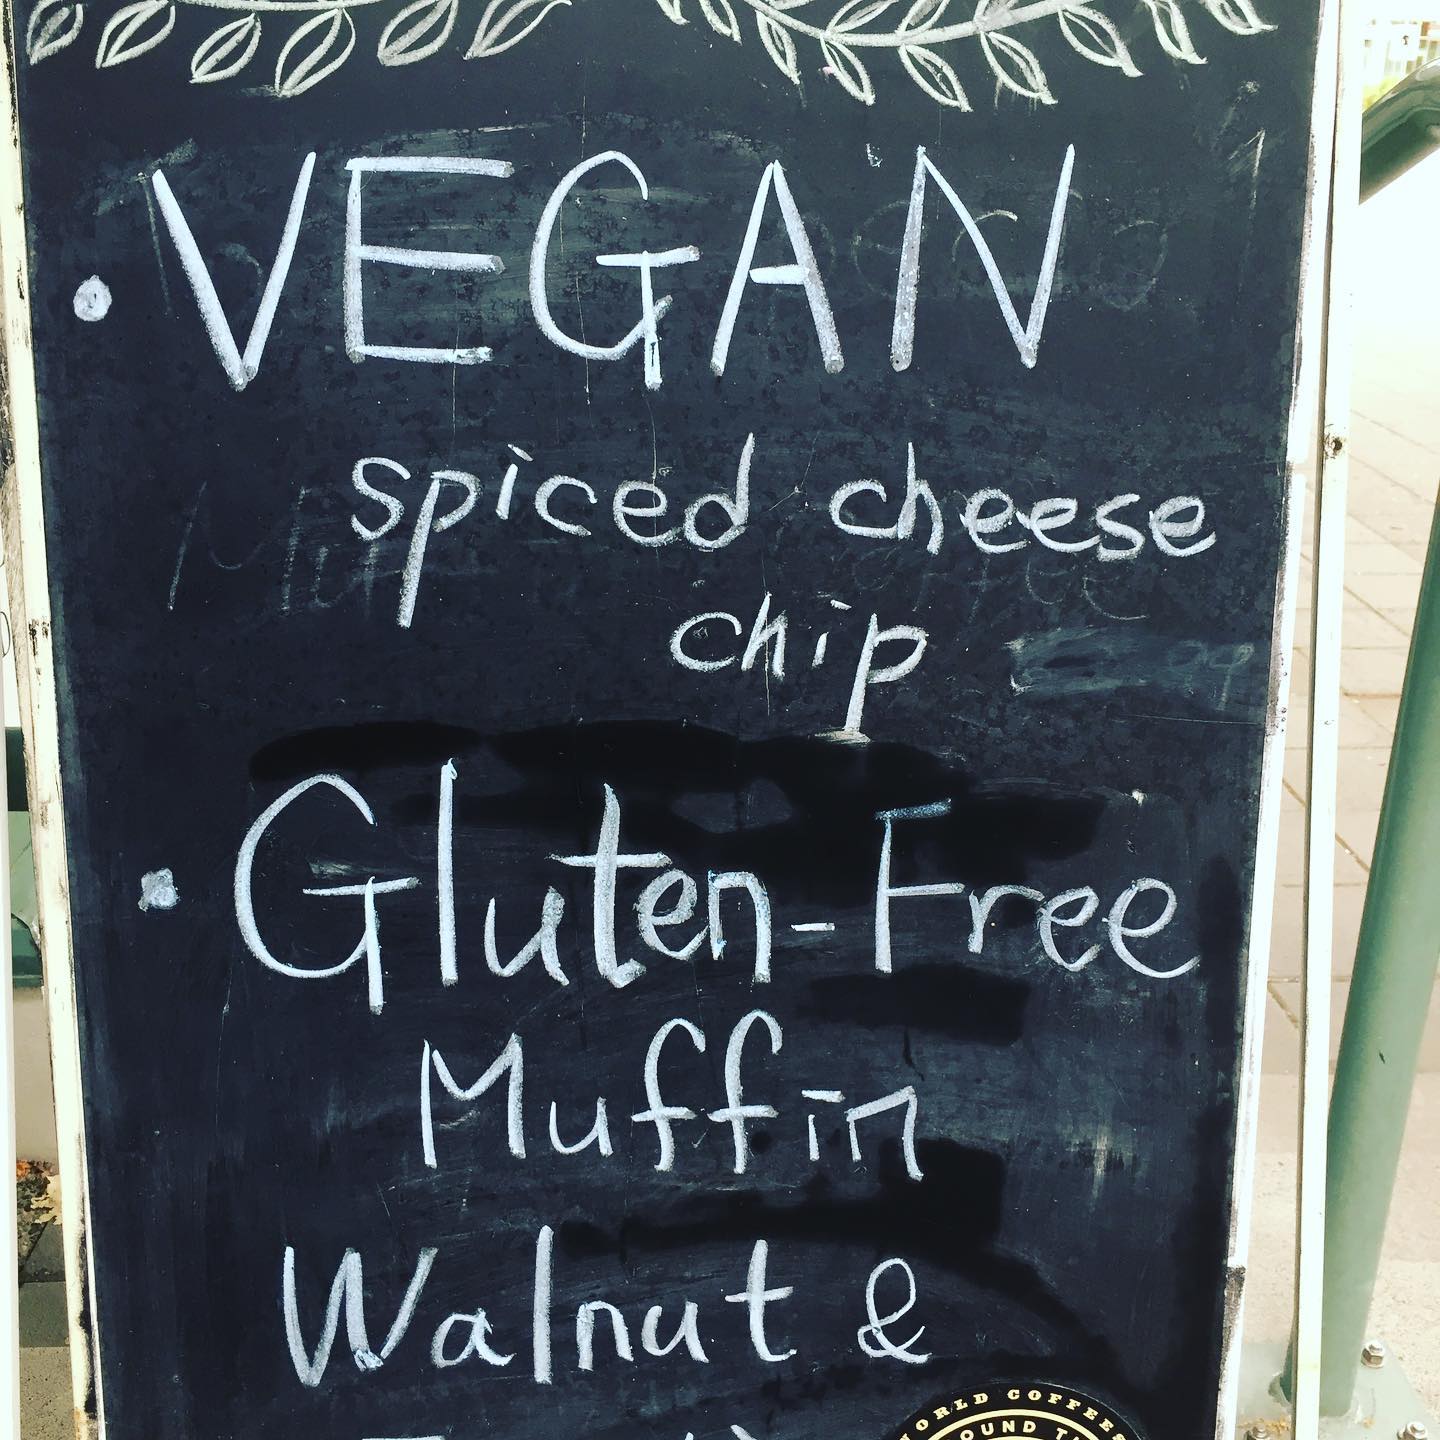 • VEGAN
spiced cheese
chip
• Gluten-Free
Muffin
Walnut &
WORLD COFFEES